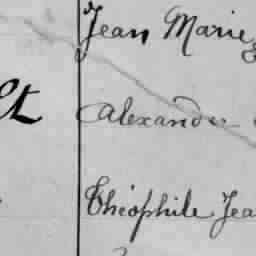 Jean Marie
Alexandre
Théophile Jea